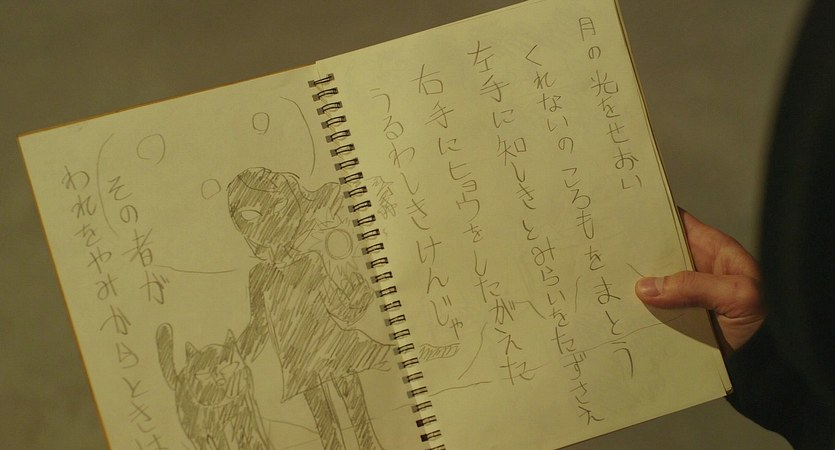 月の光をせおい
くれないのころもをまとう
左手に知しきとみらいをたずさえ
右手にヒョウをしたがえた
うるわしきけんじゃ
その者が
われをやみからときは